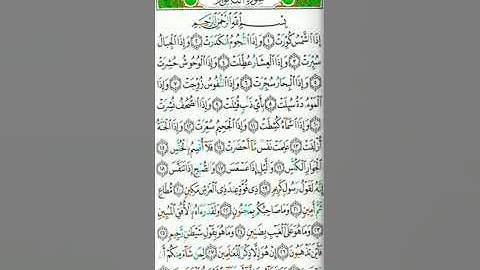 سورة التكوير
بسم الله الرحمن الرحيم
إذا الشمس كورت ١ وإذا النجوم انكدرت ٢ وإذا الجبال
سيرت ٣ وإذا العشار عطلت ٤ وإذا الوحوش حشرت
٥ وإذا البحار سجرت ٦ وإذا النفوس زوجت ٧ وإذا
الموءدة سئلت ٨ بأي ذنب قتلت ٩ وإذا الصحف نشرت
١٠ وإذا السماء كشطت ١١ وإذا الجحيم سعرت ١٢ وإذا الجنة
أزلفت ١٣ علمت نفس ما أحضرت ١٤ فلا أقسم بالخنس ١٥
الجوار الكنس ١٦ واليل إذا عسعس ١٧ والصبح إذا تنفس ١٨
إنه لقول رسول كريم ١٩ ذي قوة عند ذي العرش مكين ٢٠ مطاع
ثم أمين ٢١ وما صاحبكم بمجنون ٢٢ ولقد رءاه بالأفق المبين
٢٣ وما هو على الغيب بضنين ٢٤ وما هو بقول شيطان رجيم ٢٥
فأين تذهبون ٢٦ إن هو إلا ذكر للعالمين ٢٧ لمن شاء منكم أن